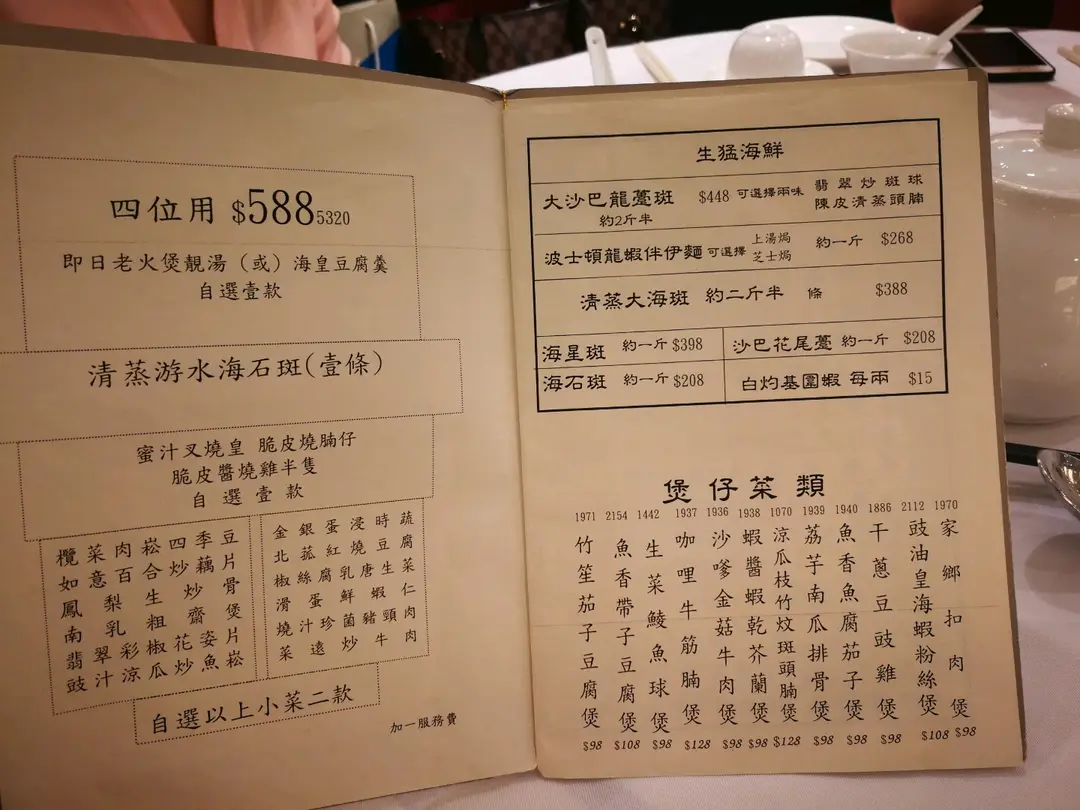 四位用 $588 5320
即日老火煲靚湯（或）海皇豆腐羹
自選壹款
清蒸游水海石斑(壹條)
蜜汁叉燒皇 脆皮燒腩仔
脆皮醬燒雞半隻
自選壹款
欖菜肉崧四季豆
如意百合炒藕片
鳳梨生炒骨
南乳粗齋煲
翡翠彩椒花姿片
豉汁涼瓜炒魚崧
金銀蛋浸時蔬
北菰紅燒豆腐
椒絲腐乳唐生菜
滑蛋鮮蝦仁
燒汁珍菌豬頸肉
菜遠炒牛肉
自選以上小菜二款
加一服務費
生猛海鮮
大沙巴龍躉斑 $448 可選擇兩味 翡翠炒斑球
約2斤半 陳皮清蒸頭腩
波士頓龍蝦伴伊麵 可選擇 上湯焗 約一斤 $268
芝士焗
清蒸大海斑 約二斤半 條 $388
海星斑 約一斤 $398
沙巴花尾躉 約一斤 $208
海石斑 約一斤 $208
白灼基圍蝦 每兩 $15
煲仔菜類
1970 家鄉扣肉煲 $98
2112 豉油皇海蝦粉絲煲 $108
1886 干蔥豆豉雞煲 $98
1940 魚香魚腐茄子煲 $98
1939 荔芋南瓜排骨煲 $98
1070 涼瓜枝竹炆斑頭腩煲 $128
1938 蝦醬蝦乾芥蘭煲 $98
1936 沙嗲金菇牛肉煲 $98
1937 咖哩牛筋腩煲 $128
1442 生菜鯪魚球煲 $98
2154 魚香帶子豆腐煲 $108
1971 竹笙茄子豆腐煲 $98